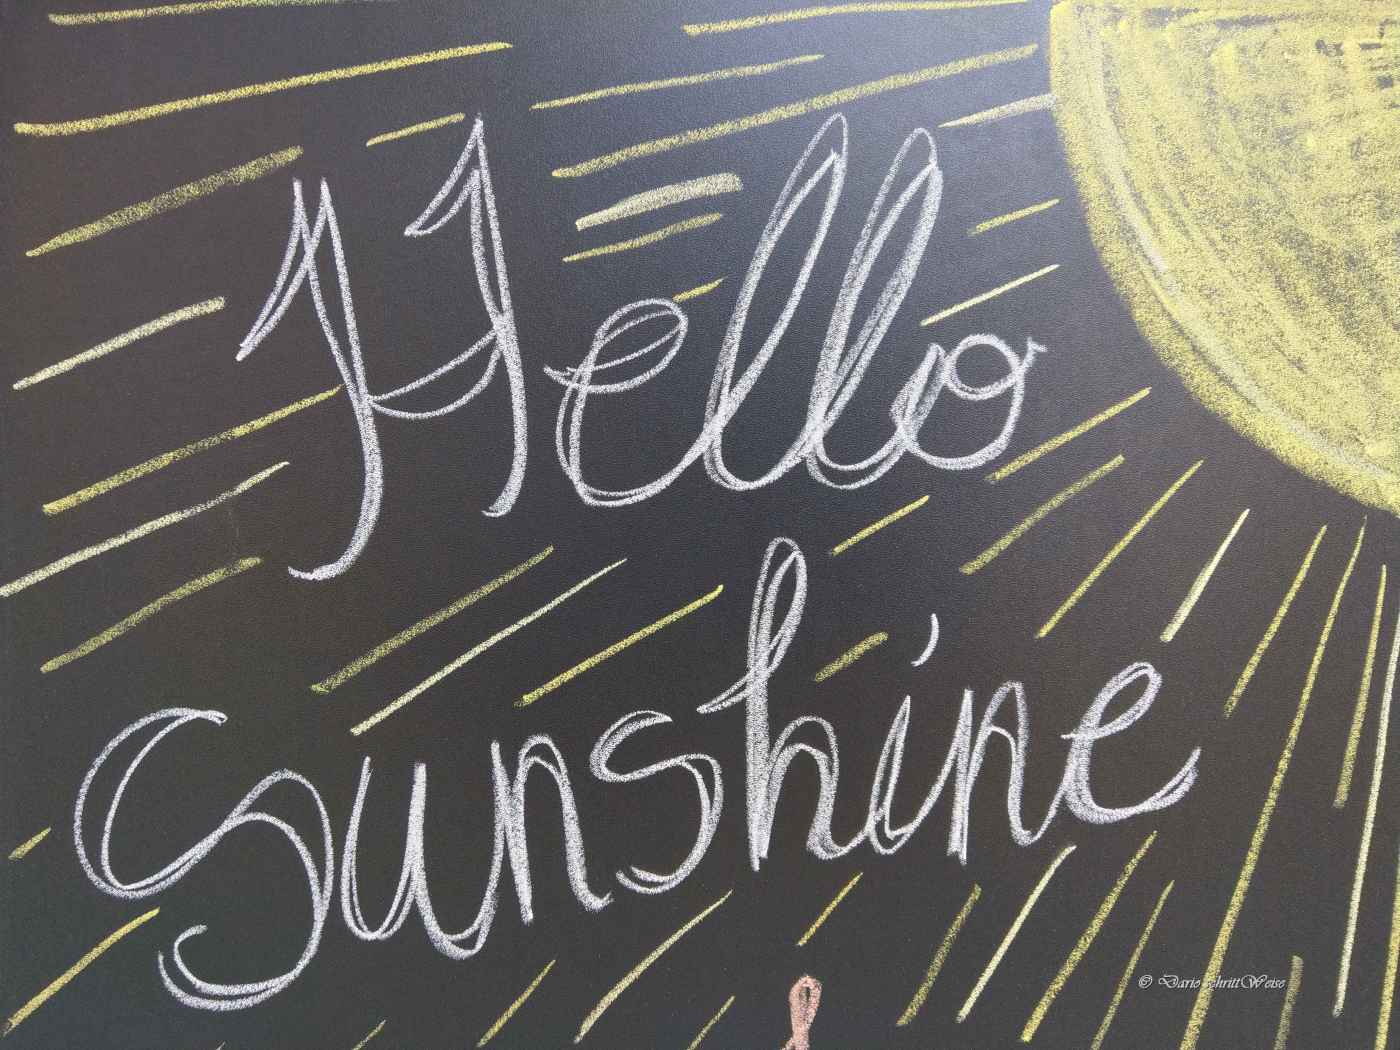 Hello
Sunshine
© DarioschrittWeise